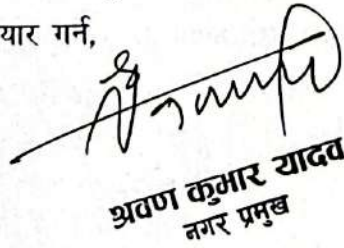 यार गर्न,
श्रवण कुमार यादव
नगर प्रमुख